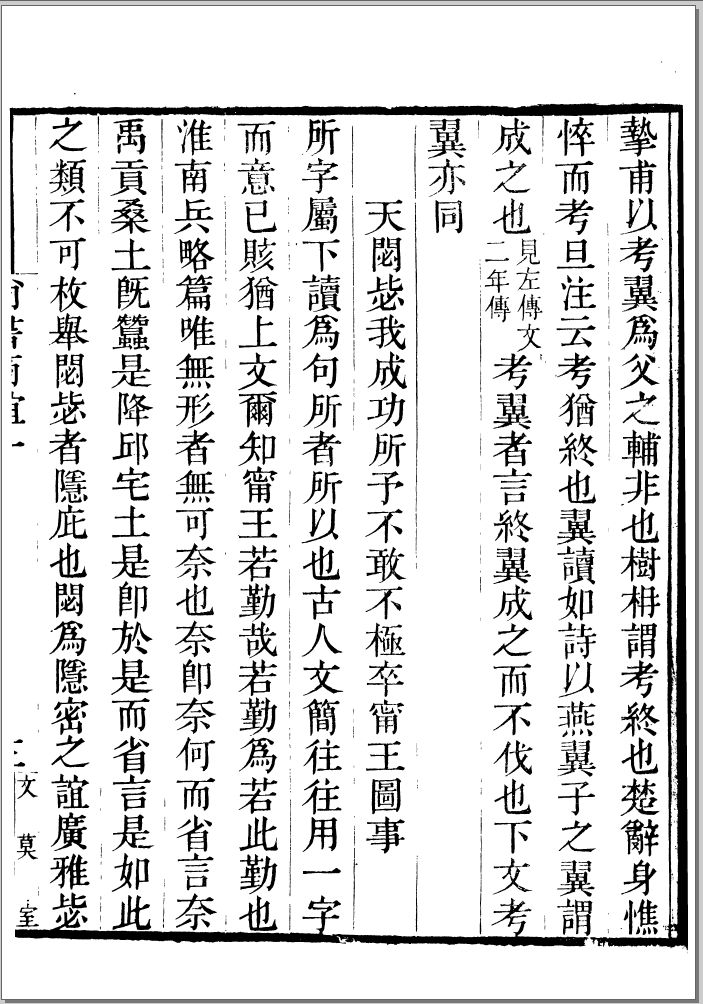 摯甫以考翼爲父之輔非也樹枬謂考終也楚辭身憔
悴而考旦注云考猶終也翼讀如詩以燕翼子之翼謂
成之也見左傳文二年傳考翼者言終翼成之而不伐也下文考
翼亦同
天閟毖我成功所予不敢不極卒甯王圖事
所字屬下讀爲句所者所以也古人文簡往往用一字
而意已賅猶上文爾知甯王若勤哉若勤爲若此勤也
淮南兵略篇唯無形者無可奈也奈卽奈何而省言奈
禹貢桑土旣蠶是降邱宅土是卽於是而省言是如此
之類不可枚舉閟毖者隱庇也閟爲隱密之誼廣雅毖
文莫室